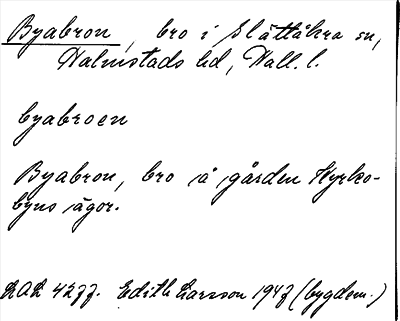 Byabron, bro i Slättåkra sn,
Halmstads hd, Hall. l.
byabroen
Byabron, bro å gården Hyrko-
byns ägor.
LAL 4277. Edith Larsson 1947 (bygdem.)